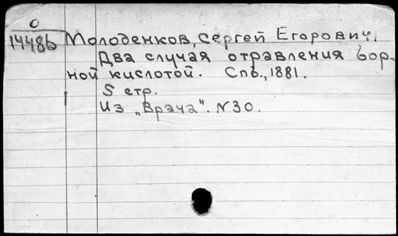 О
14486 Молоденков, Сергей Егорович.
Два случая отравления бор-
ной кислотой. Спб., 1881.
5 стр.
Из „Врача". №30.